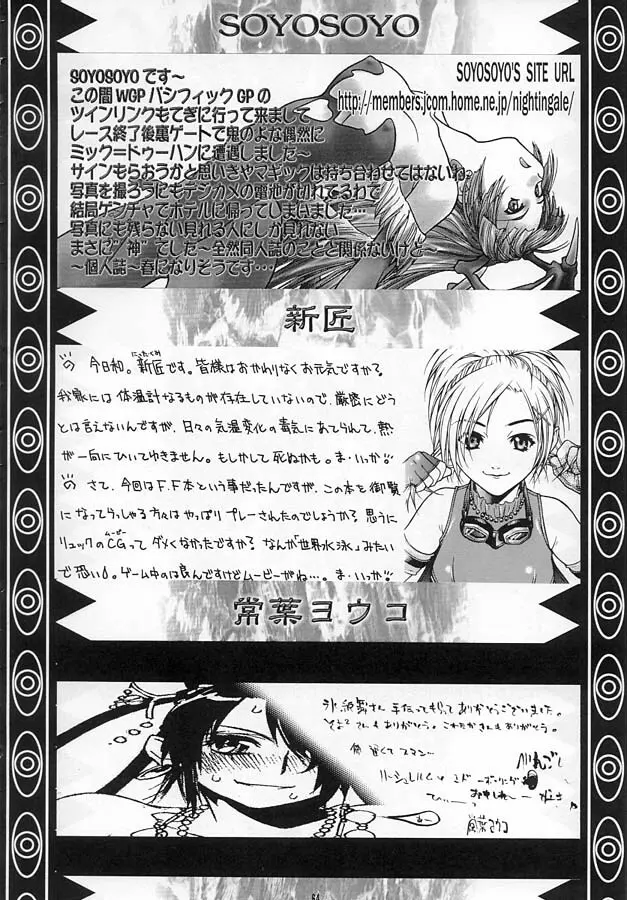 SOYOSOYO
SOYOSOYOです～
この間WGPパシフィックGPの
ツインリンクもてぎに行って来まして
レース終了後裏ゲートで鬼のよな偶然に
ミック=ドゥーハンに遭遇しました～
サインもらおうかと思いきやマギックは持ち合わせてはないわ
写真を撮ろうにもデジカメの電池が切れてるわで
結局ゲンチャでホテルに帰ってしまいました…
写真にも残らない見れる人にしか見れない
まさに"神"でした～全然同人誌のことと関係ないけど
～個人誌～春になりそうです…
SOYOSOYO'S SITE URL
http://members.jcom.home.ne.jp/nightingale/
新匠
今日和。新匠です。皆様はおかわりなくお元気ですか?
我家には体温計なるものが存在していないので、厳密にどう
とは言えないんですが、日々の気温変化の毒気にあてられて、熱
が一向にひいてゆきません。もしかして死ぬかも。ま・いっか
さて、今回はF.F本という事だったんですが、この本を御覧
になってらっしゃる方々はやっぱりプレーされたのでしょうか?思うに
リュックのCGってダメくなかったですか?なんか「世界水泳」みたい
で恐い。ゲーム中のは良んですけどムービーがね…。ま・いっか
常葉ヨウコ
さん 手伝ってもらってありがとうございました。
さんもありがとう。 さんもありがとう。
遅くてスマン…
64